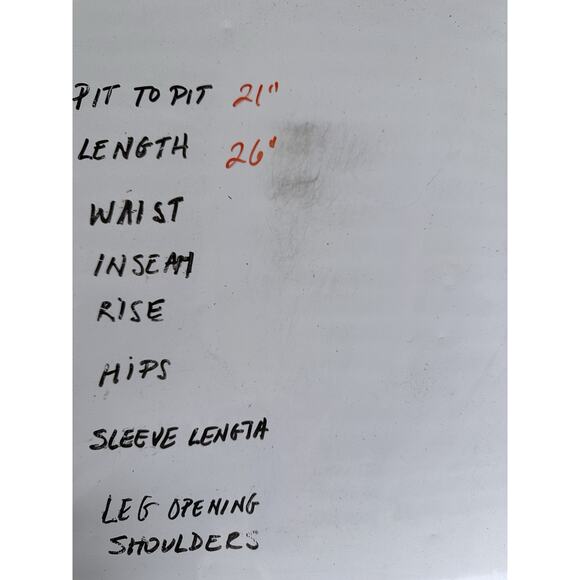 PIT TO PIT 21"
LENGTH 26"
WAIST
INSEAM
RISE
HiPS
SLEEVE LENGTH
LEG OPENING
SHOULDERS